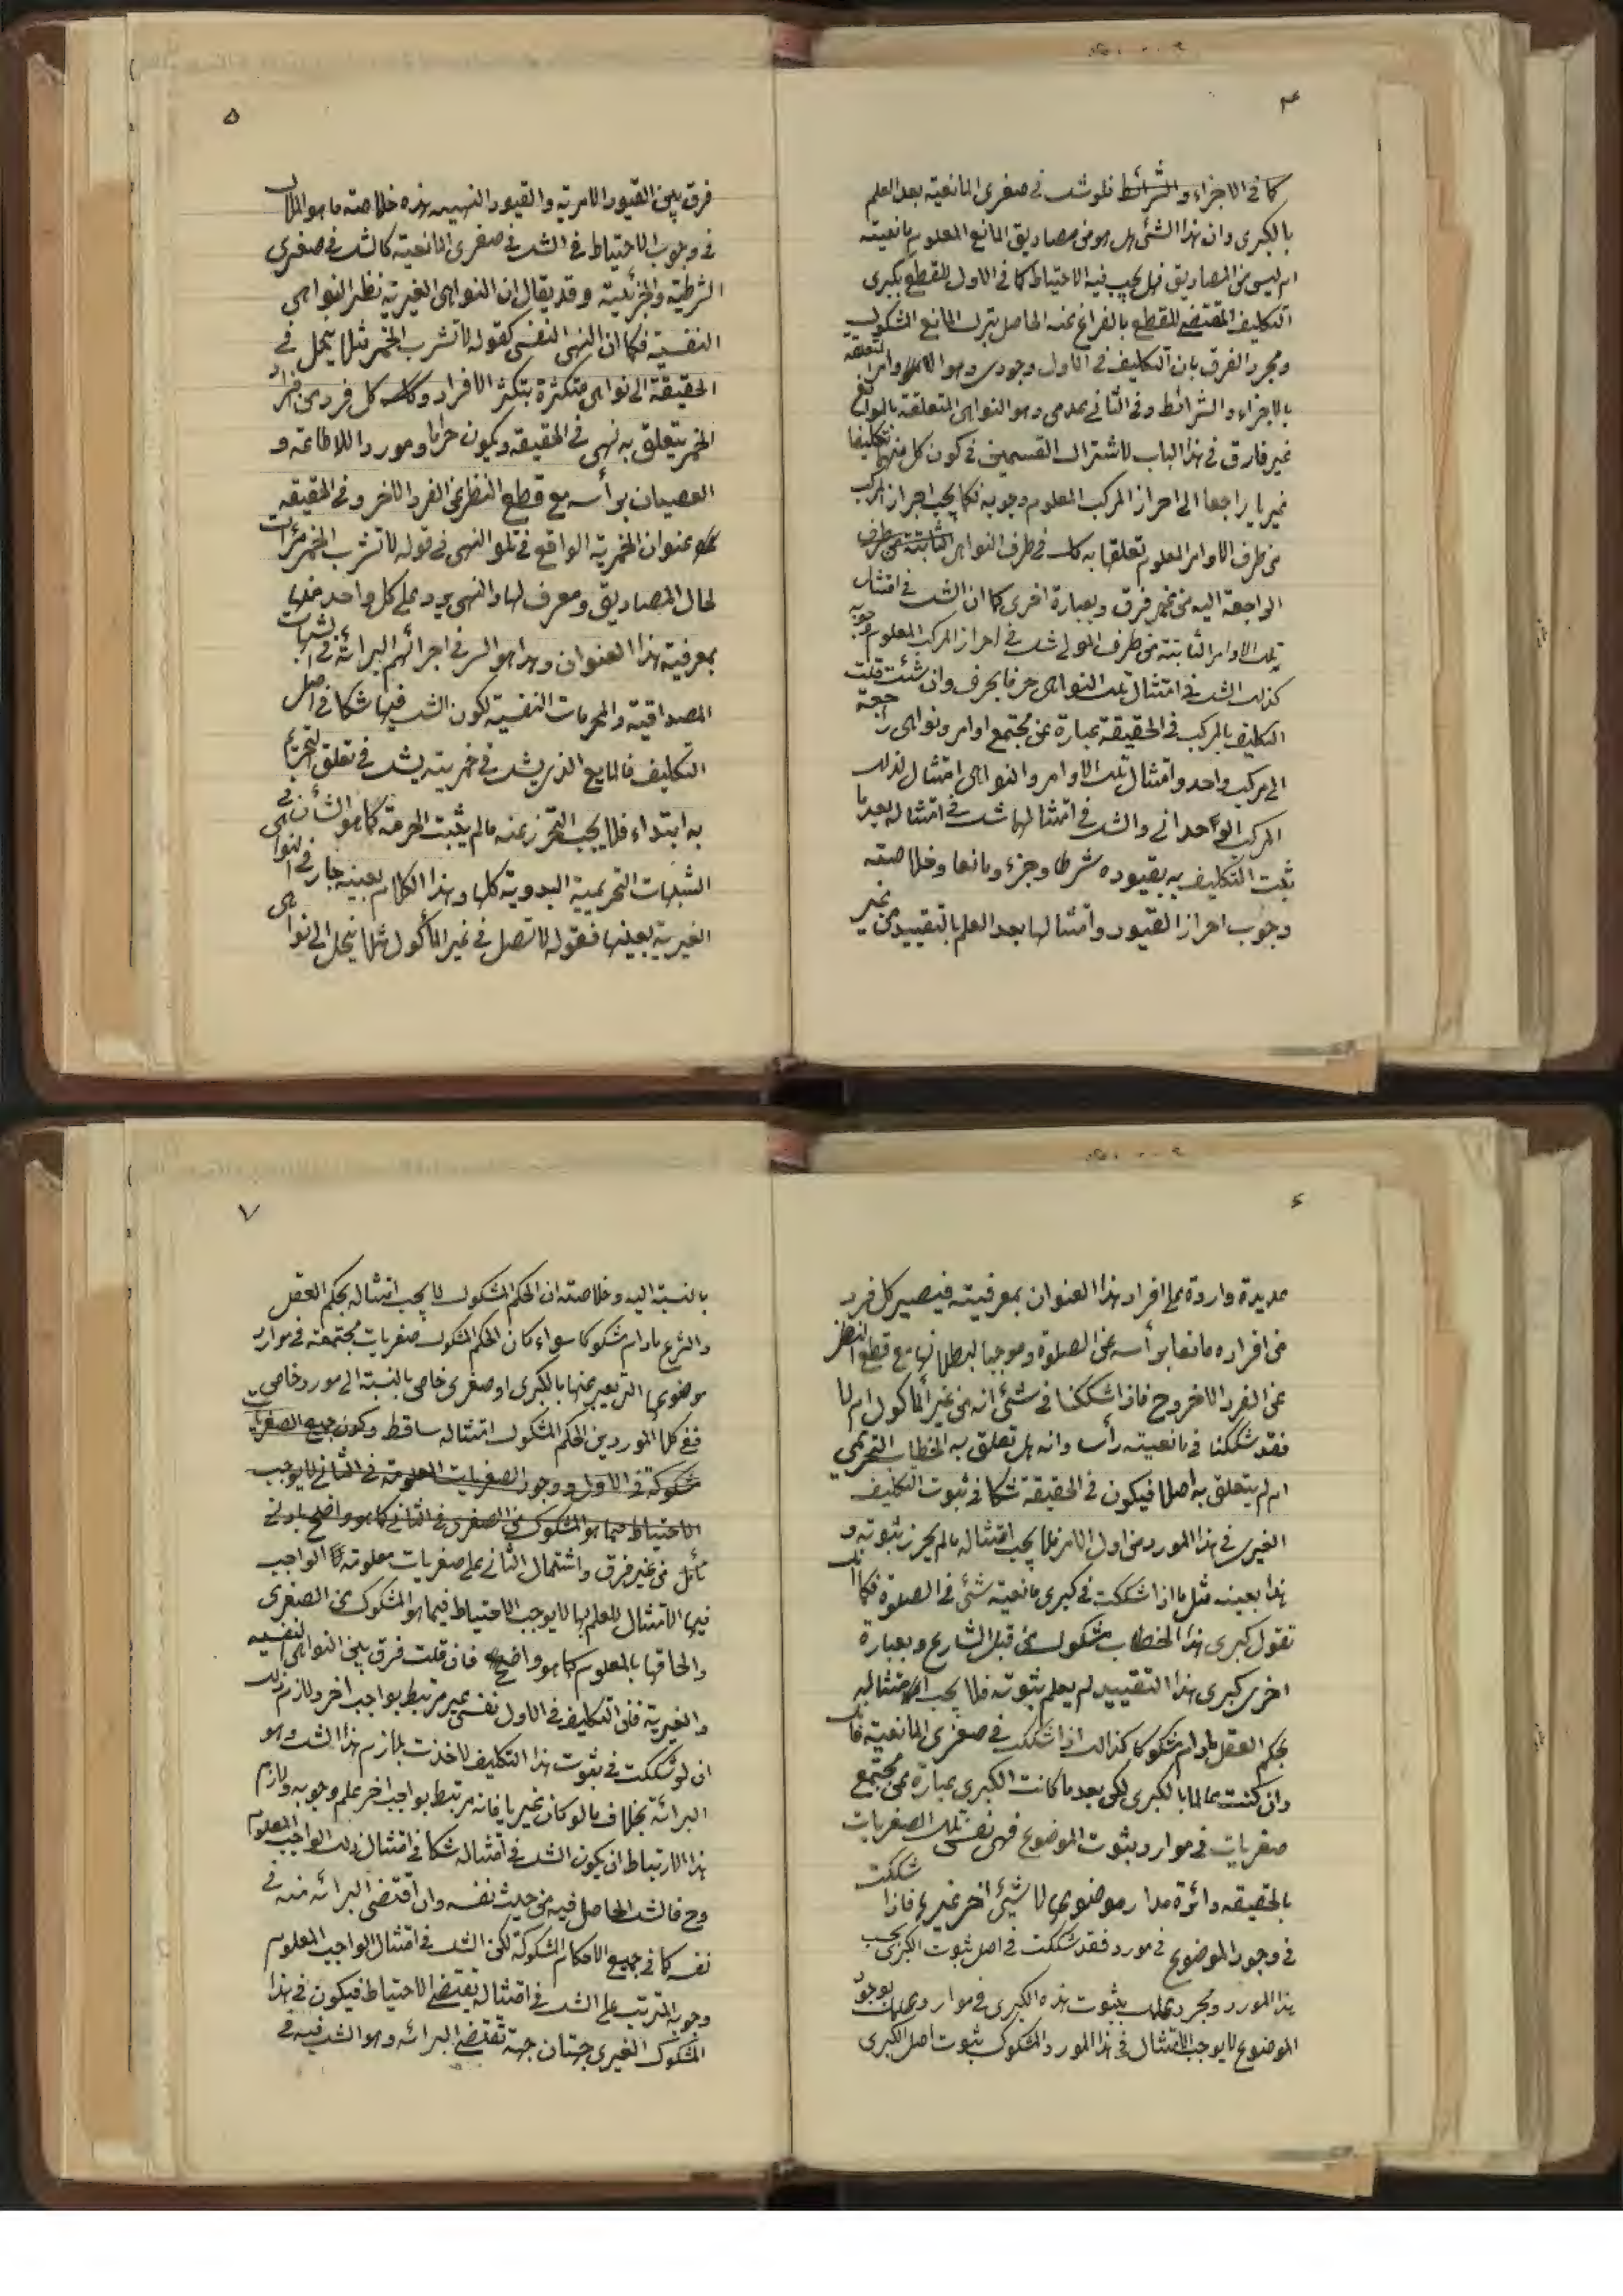 ۴
كما فى الاجزاء والشرائط فلو شك فى صغرى المانعية بعد العلم
بالكبرى وان هذا الشئ هل هو من مصاديق المانع المعلوم مانعيته
ام ليس من المصاديق فهل يجب فيه الاحتياط كما فى الاول للقطع بكبرى
التكليف المقتضى للقطع بالفراغ عنه الحاصل بترك المانع المشكوك
ومجرد الفرق بان التكليف فى الاول وجودى وهو الاوامر المتعلقة
بالاجزاء والشرائط وفى الثانى عدمى وهو النواهى المتعلقة بالموانع
غير فارق فى هذا الباب لاشتراك القسمين فى كون كل منهما تكليفا
غيريا راجعا الى احراز المركب المعلوم وجوبه فكما يجب احراز المركب
من طرف الاوامر المعلوم تعلقها به كك فى طرف النواهى الثابتة من طرف
الراجعة اليه من غير فرق وبعبارة اخرى كما ان الشك فى امتثال
تلك الاوامر الثابتة من طرف المولى شك فى احراز المركب المعلوم وجوبه
كذلك الشك فى امتثال تلك النواهى حرفا بحرف وان شئت قلت
التكليف بالمركب فى الحقيقة عبارة عن مجتمع اوامر ونواهى راجعة
الى مركب واحد وامتثال تلك الاوامر والنواهى امتثال لذلك
المركب الوحدانى والشك فى امتثالها شك فى امتثاله بعد ما
ثبت التكليف به بقيوده شرطا وجزء ومانعا وخلاصته
وجوب احراز القيود وامتثالها بعد العلم بالتقييد من غير
۵
فرق بين القيود الامرية والقيود النهييه هذه خلاصة ما هو الملاك
فى وجوب الاحتياط فى الشك فى صغرى المانعية كالشك فى صغرى
الشرطية والجزئية وقد يقال ان النواهى الغيرية نظير النواهى
النفسية فكما ان النهى النفسى كقوله لا تشرب الخمر مثلا ينحل فى
الحقيقة الى نواهى متكثرة بتكثر الافراد وكك كل فرد من افراد
الخمر يتعلق به نهى فى الحقيقة ويكون حراما وموردا للاطاعة و
العصيان برأسه مع قطع النظر عن الفرد الاخر وفى الحقيقه
عنوان الخمرية الواقع فى تلو النهى فى قوله لا تشرب الخمر مرآت
لحال المصاديق ومعرف لها والنهى يرد على كل واحد منها
بمعرفية هذا العنوان وهذا هو السر فى اجرائهم البرائة فى الشبهات
المصداقية والمحرمات النفسية لكون الشك فيها شكا فى اصل
التكليف فالمايع الذى يشك فى خمريته يشك فى تعلق التحريم
به ابتداء فلا يجب التحرز عنه ما لم يثبت الحرمة كما هو الشأن فى
الشبهات التحريمية البدوية كلها وهذا الكلام بعينه جار فى النواهى
الغيرية بعينها فقوله لا تصل فى غير المأكول مثلا ينحل الى نواهى
۶
عديدة واردة على افراد هذا العنوان بمعرفيته فيصير كل فرد
من افراده مانعا برأسه عن الصلوة وموجبا لبطلانها مع قطع النظر
عن الفرد الاخر وح فاذا شككنا فى شئ انه من غير المأكول ام لا
فقد شككنا فى مانعيته رأسا وانه هل تعلق به الخطاب التحريمى
ام لم يتعلق به اصلا فيكون فى الحقيقة شكا فى ثبوت التكليف
الغيرى فى هذا المورد من اول الامر فلا يجب امتثاله ما لم يحرز ثبوته و
هذا بعينه مثل ما اذا شككت فى كبرى مانعية شئ فى الصلوة فكما انك
تقول كبرى هذا الخطاب مشكوك من قبل الشارع وبعبارة
اخرى كبرى هذا التقييد لم يعلم ثبوته فلا يجب امتثاله
بحكم العقل مادام شكوكا كذلك اذا شككت فى صغرى المانعية فانك
وان كنت عالما بالكبرى لكن بعد ما كانت الكبرى عبارة عن مجتمع
صغريات فى موارد ثبوت الموضوع فهى نفس تلك الصغريات
بالحقيقه دائرة مدار موضوعها لا شيئ اخر غيرها فاذا شككت
فى وجود الموضوع فى مورد فقد شككت فى اصل ثبوت الكبرى بحسب
هذا المورد ومجرد علمك بثبوت هذه الكبرى فى موارد علمك بوجود
الموضوع لا يوجب الامتثال فى هذا المورد المشكوك ثبوت اصل الكبرى
۷
بالنسبة اليه وخلاصته ان الحكم المشكوك لا يجب امتثاله بحكم العقل
والشرع مادام شكوكا سواء كان الحكم المشكوك صغريات مجتمعة فى موارد
موضوعها التى يعبر عنها بالكبرى او صغرى خاص بالنسبة الى مورد خاص
ففى كلا الموردين الحكم المشكوك امتثاله ساقط وكون جميع الصغريات
مشكوكة فى الاول ووجود الصغريات المعلومة فى الثانى لا يوجب
الاحتياط فيما هو المشكوك من الصغرى فى الثانى كما هو واضح بادنى
تأمل من غير فرق واشتمال الثانى على صغريات معلومة الواجب
فيها الامتثال للعلم بها لا يوجب الاحتياط فيما هو المشكوك من الصغرى
والحاقها بالمعلوم كما هو واضح فان قلت فرق بين النواهى النفسيه
والغيرية فان التكليف فى الاول نفسى غير مرتبط بواجب اخر ولازم ذلك
ان لو شككت فى ثبوت هذا التكليف لاخذت بلازم هذا الشك وهو
البرائة بخلاف ما لو كان غيريا فانه مرتبط بواجب اخر علم وجوبه ولازم
هذا الارتباط ان يكون الشك فى امتثاله شكا فى امتثال ذلك الواجب المعلوم
وح فالشك الحاصل فيه من حيث نفسه وان اقتضى البرائه منه فى
نفسه كما فى جميع الاحكام المشكوكة لكن الشك فى امتثال الواجب المعلوم
وجوبه المترتب على الشك فى امتثاله يقتضى الاحتياط فيكون فى هذا
المشكوك الغيرى جهتان جهة تقتضى البرائه وهو الشك فيه فى